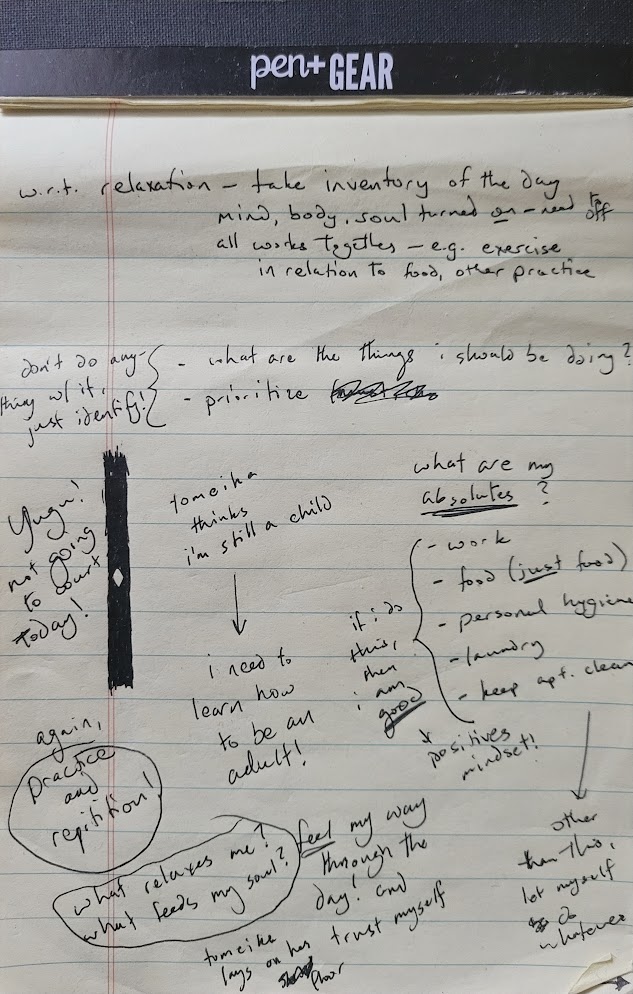 pen+GEAR
w.r.t. relaxation - take inventory of the day
mind, body, soul turned on - need to off
all works together - e.g. exercise
in relation to food, other practice
don't do any-
thing w/ it,
just identify!
- what are the things i should be doing?
- prioritize
Yugu!
not going
to court
today!
tomeika
thinks
i'm still a child
i need to
learn how
to be an
adult!
what are my
absolutes?
- work
- food (just food)
- personal hygiene
- laundry
- keep apt. clean
if i do
this,
then
i am
good
* positives
mindset!
other
than this,
let myself
do
whatever
again,
practice
and
repitition!
what relaxes me?
what feeds my soul?
feel my way
through the
day! and
trust myself
tomeika
lays on her
floor